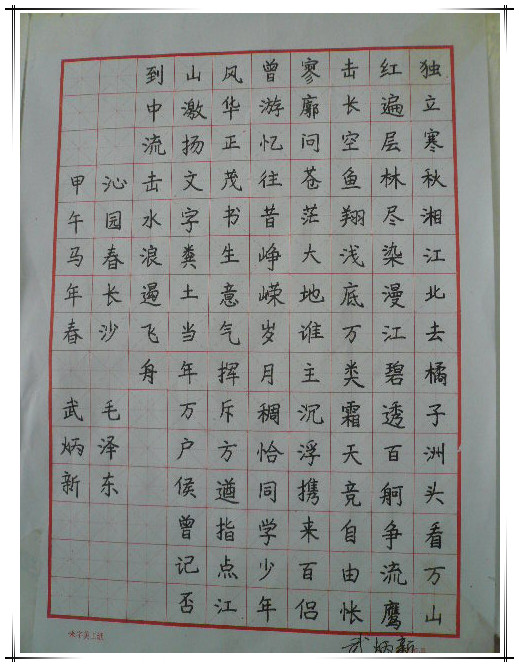 独立寒秋湘江北去橘子洲头看万山
红遍层林尽染漫江碧透百舸争流鹰
击长空鱼翔浅底万类霜天竞自由怅
寥廓问苍茫大地谁主沉浮携来百侣
曾游忆往昔峥嵘岁月稠恰同学少年
风华正茂书生意气挥斥方遒指点江
山激扬文字粪土当年万户侯曾记否
到中流击水浪遏飞舟
沁园春长沙 毛泽东
甲午马年春 武炳新
武炳新